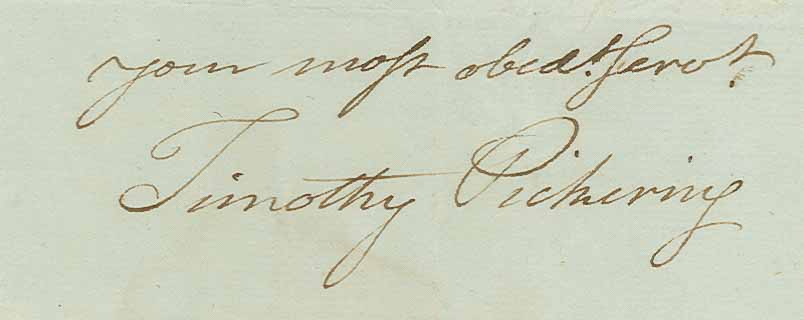 your most obedt. Servt.
Timothy Pickering